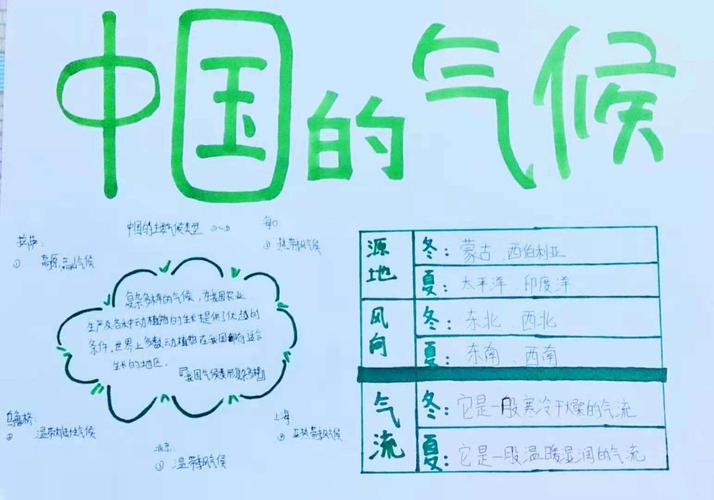 中国的气候
中国的主要气候类型
拉萨:
① 高原山地气候
海口
① 热带季风气候
复杂多样的气候,为我国农业
生产及各种动植物的生长提供了优越的
条件,世界上多数动植物在我国都有适合
生长的地区。
我国气候类型复杂多样
乌鲁木齐:
① 温带大陆性气候
北京:
① 温带季风气候
上海
① 亚热带季风气候
源地
冬:蒙古、西伯利亚
夏:太平洋、印度洋
风向
冬:东北、西北
夏:东南、西南
气流
冬:它是一股寒冷干燥的气流
夏:它是一股温暖湿润的气流